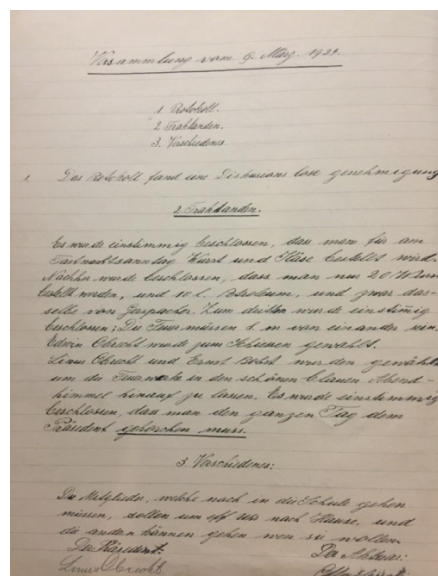 Versammlung vom 9. März. 1929.
1. Protokoll.
2. Trahktanden.
3. Verschiedenes
1. Das Protokoll fand eine Diskusions lose genehmigung
2. Trahktanden.
Es wurde einstimmig beschlossen, das man für am
Fastnachtsonntag Würst und Käse bestellt wird.
Nachher wurde beschlossen, dass man nur 20 Würst
bestellt werden, und 10 l. Petroleum, und zwar das-
selbe von Gerspacher. Zum dritten wurde einstimmig
beschlossen: Die Feuer müssen 1. m von ein ander sein.
Edwin Obrecht wurde zum gewählt.
Linus Obrecht und Ernst wurden gewählt
um die Feuerwerke in den schönen blauen Abend-
himmel hinauf zu lassen. Es wurde einstimmig
beschlossen, das man den ganzen Tag dem
Präsident gehorchen muss.
3. Verschiedenes:
Die Mitglieder, welche noch in die Schule gehen
müssen, sollen um elf Uhr nach Hause, und
die andern können gehen wen sie wollen.
Der Präsident: Der Aktuar:
Linus Obrecht